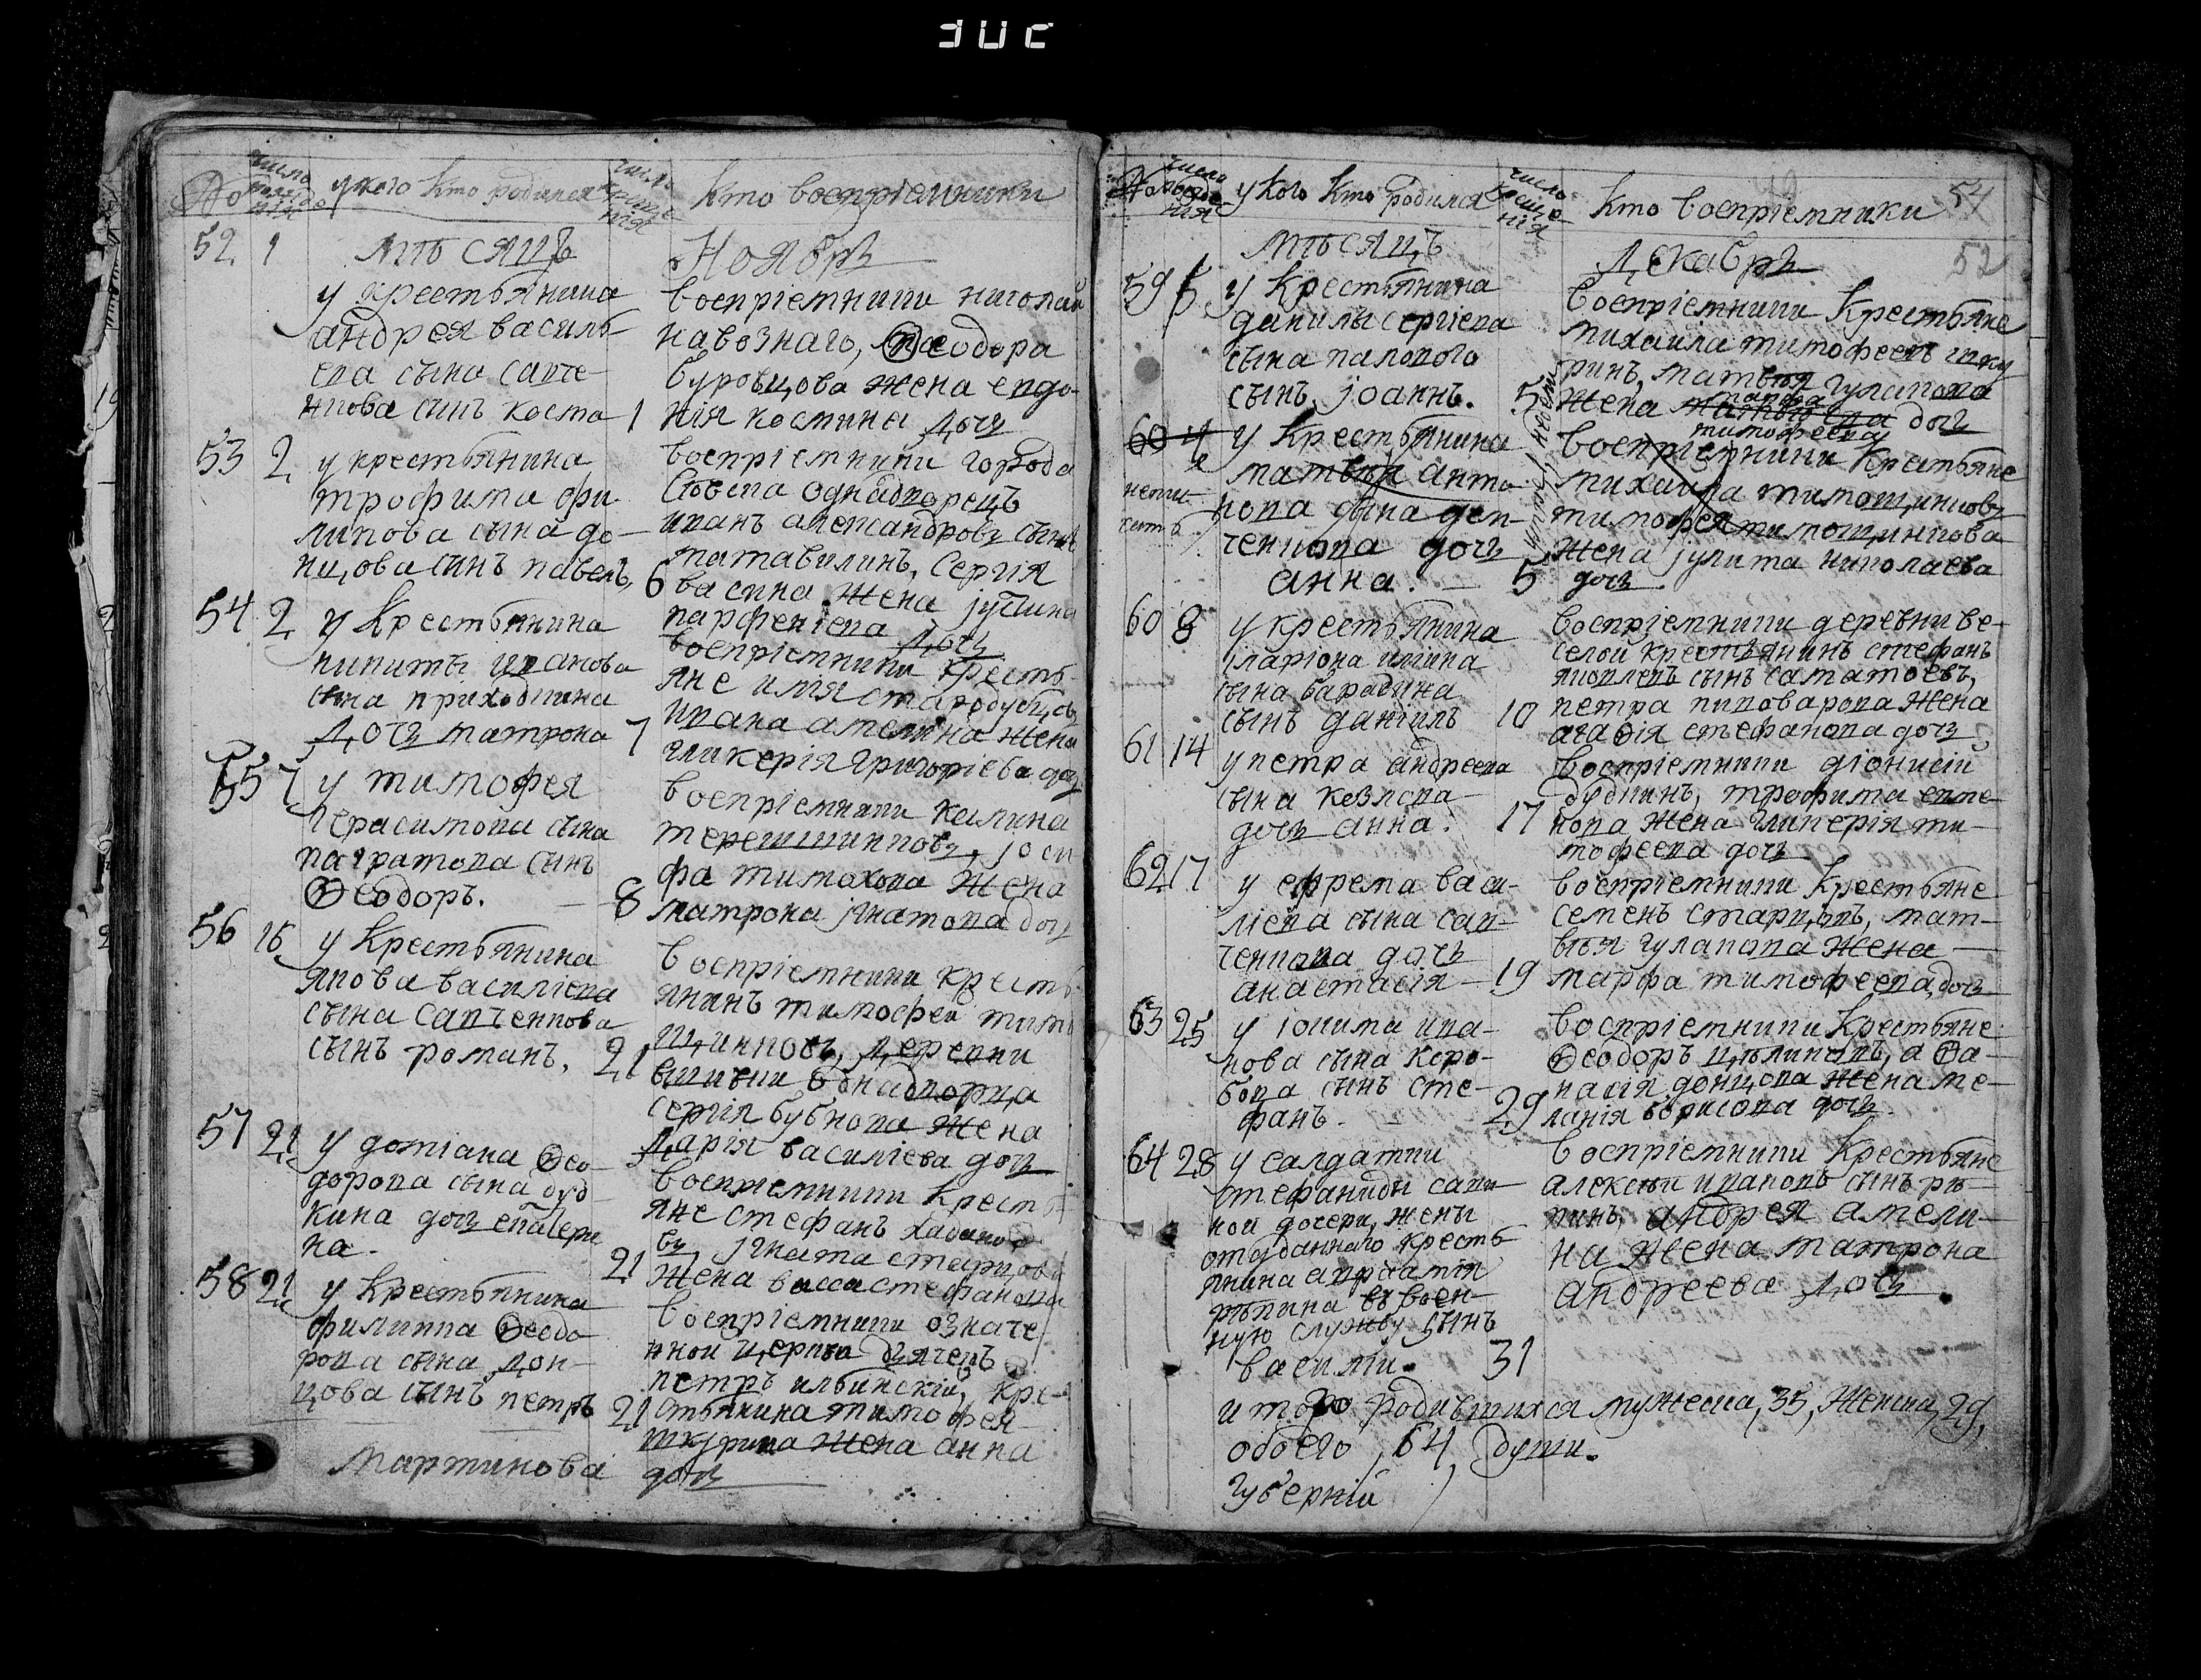 №
число рождения
у кого кто родился
число крещения
кто воспрiемники
52 1
мѣсяцъ
Ноябрь
у крестьянина
андрея василь-
ева сына савче-
нкова сынъ косма 1
воспрiемники николай
навознаго, Ѳеодора
буровцова жена евдо-
кiя космина дочь
53 2
у крестьянина
трофима фи-
липова сына до-
нцова сынъ павелъ, 6
воспрiемники города
однадворецъ
иванъ александровъ сынъ
Сергiя
жена
парфенiева дочь
54 2
у крестьянина
никиты иванова
сына приходкина
дочь матрона 7
воспрiемники кресть-
яне илiя стародубцовъ
ивана амелина жена
гликерiя григорiева дочь
55 7
у тимофея
герасимова сына
панкратова сынъ
Ѳеодоръ. 8
воспрiемники калина
терешинковъ, iоси-
фа тимохова жена
матрона iгнатова дочь
56 15
у крестьянина
якова василiева
сына савченкова
сынъ романъ. 21
воспрiемники кресть-
янинъ тимофей тимо-
щинковъ, деревни
вшивки однадворца
сергiя бубнова жена
дарiя василiева дочь
57 21
у домiана Ѳео-
дорова сына дуд-
кина дочь екатери
на. 21
воспрiемники кресть
яне стефанъ хабаро-
въ, iгната старцова
жена васса стефанова
58 21
у крестьянина
филиппа Ѳеодо
рова сына дон-
цова сынъ петръ 21
воспрiемники означе-
нной церкви дячекъ
петръ ильинскiй, кре-
стьянина тимофея
шкурина жена анна
мартинова дочь
№
число рождения
у кого кто родился
число крещения
кто воспрiемники
54
52
мѣсяцъ
декабрь
59 5
у крестьянина
данилы сергiева
сына палового
сынъ iоаннъ. 5
воспрiемники крестьяне
михаила тимофеевъ шку
ринъ, матвѣя гулапова
жена марфа дочь
тимофеева
60 4
у крестьянина
матвѣя анто-
нова сына дем-
ченкова дочь
анна. 5
воспрiемники крестьяне
михаила тимощинковъ
тимофея тимощинкова
жена iулита николаева
дочь
60 8
у крестьянина
iларiона илiина
сына барадина
сынъ данiилъ 10
воспрiемники деревни ве-
селой крестьянинъ стефанъ
яковлевъ сынъ саматоевъ,
петра пивоварова жена
агаѳiя стефанова дочь
61 14
у петра андреева
сына козлова
дочь анна. 17
воспрiемники дiонисiй
дудкинъ, трофима
жена гликерiя ти-
мофеева дочь
62 17
у ефрема васи-
лiева сына сав-
ченкова дочь
анастасiя 19
воспрiемники крестьяне
семенъ старцовъ, мат-
вѣя гулапова жена
марфа тимофеева дочь
63 25
у iоакима ива-
нова сына коро-
бова сынъ сте-
фанъ. 29
воспрiемники крестьяне
Ѳеодоръ цѣликовъ, аѲа-
насiя донцова жена ме-
ланiя борисова дочь
64 28
у салдатки
стефаниды савв
ной дочери, жены
отуданнаго кресть
янина
рѣпина въ воен-
ную службу сынъ
василiй. 31
воспрiемники крестьяне
алексѣй ивановъ сынъ рѣ-
пинъ, андрея амели-
на жена матрона
андреева дочь
итого родившихся мужеска, 35, женска, 29,
обоего, 64, души.
губернiй